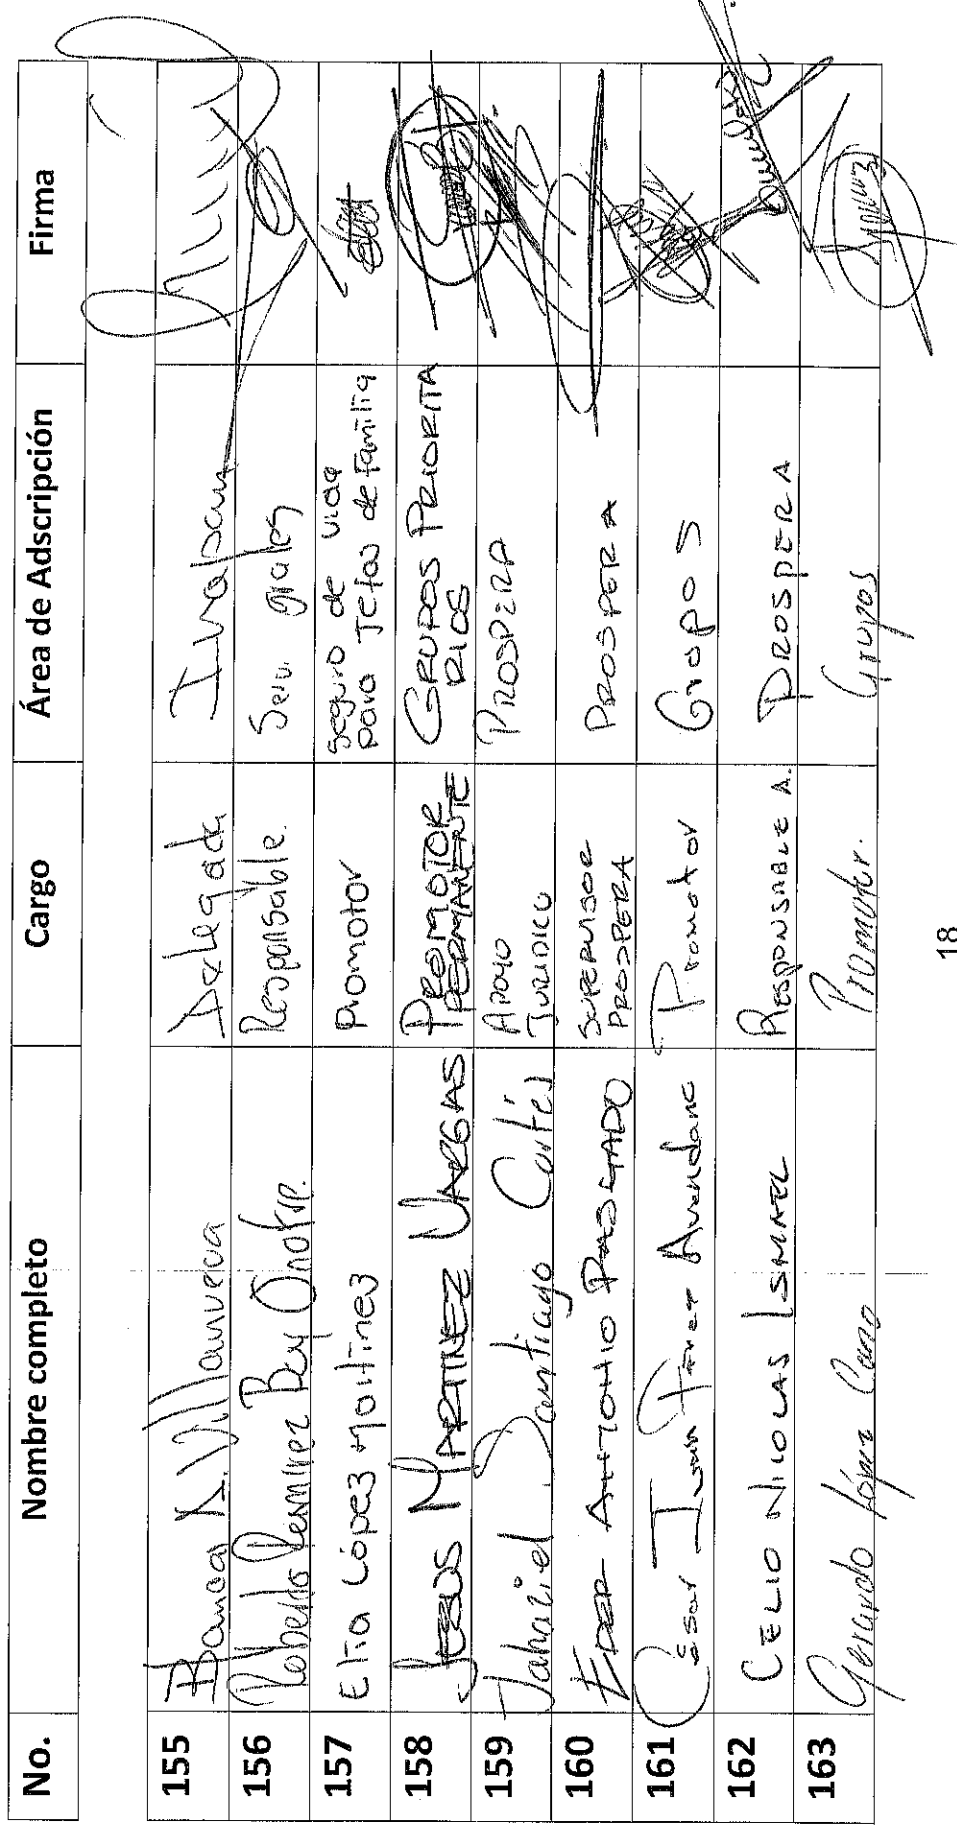 No. Nombre completo Cargo Área de Adscripción Firma
155 Bania A. Villanueva Delegada Ixvalpam
156 Roberto Ramírez Bay Onofre. Responsable. Serv. grales
157 Elia López Martínez Promotor Seguro de vida
para Jefas de familia
158 Jesus Martinez Vargas Promotor
permanente Grupos Priorita
rios
159 Jahaziel Santiago Cortés Apoyo
Juridico Prospera
160 Eder Antonio Pasgado Supervisor
Prospera PROSPERA
161 César Ivan Pérez Avendaño Promotor Grupos
162 CELIO NICOLAS ISMAEL RESPONSABLE A. PROSPERA
163 Gerardo López Cano Promotor. Grupos
18